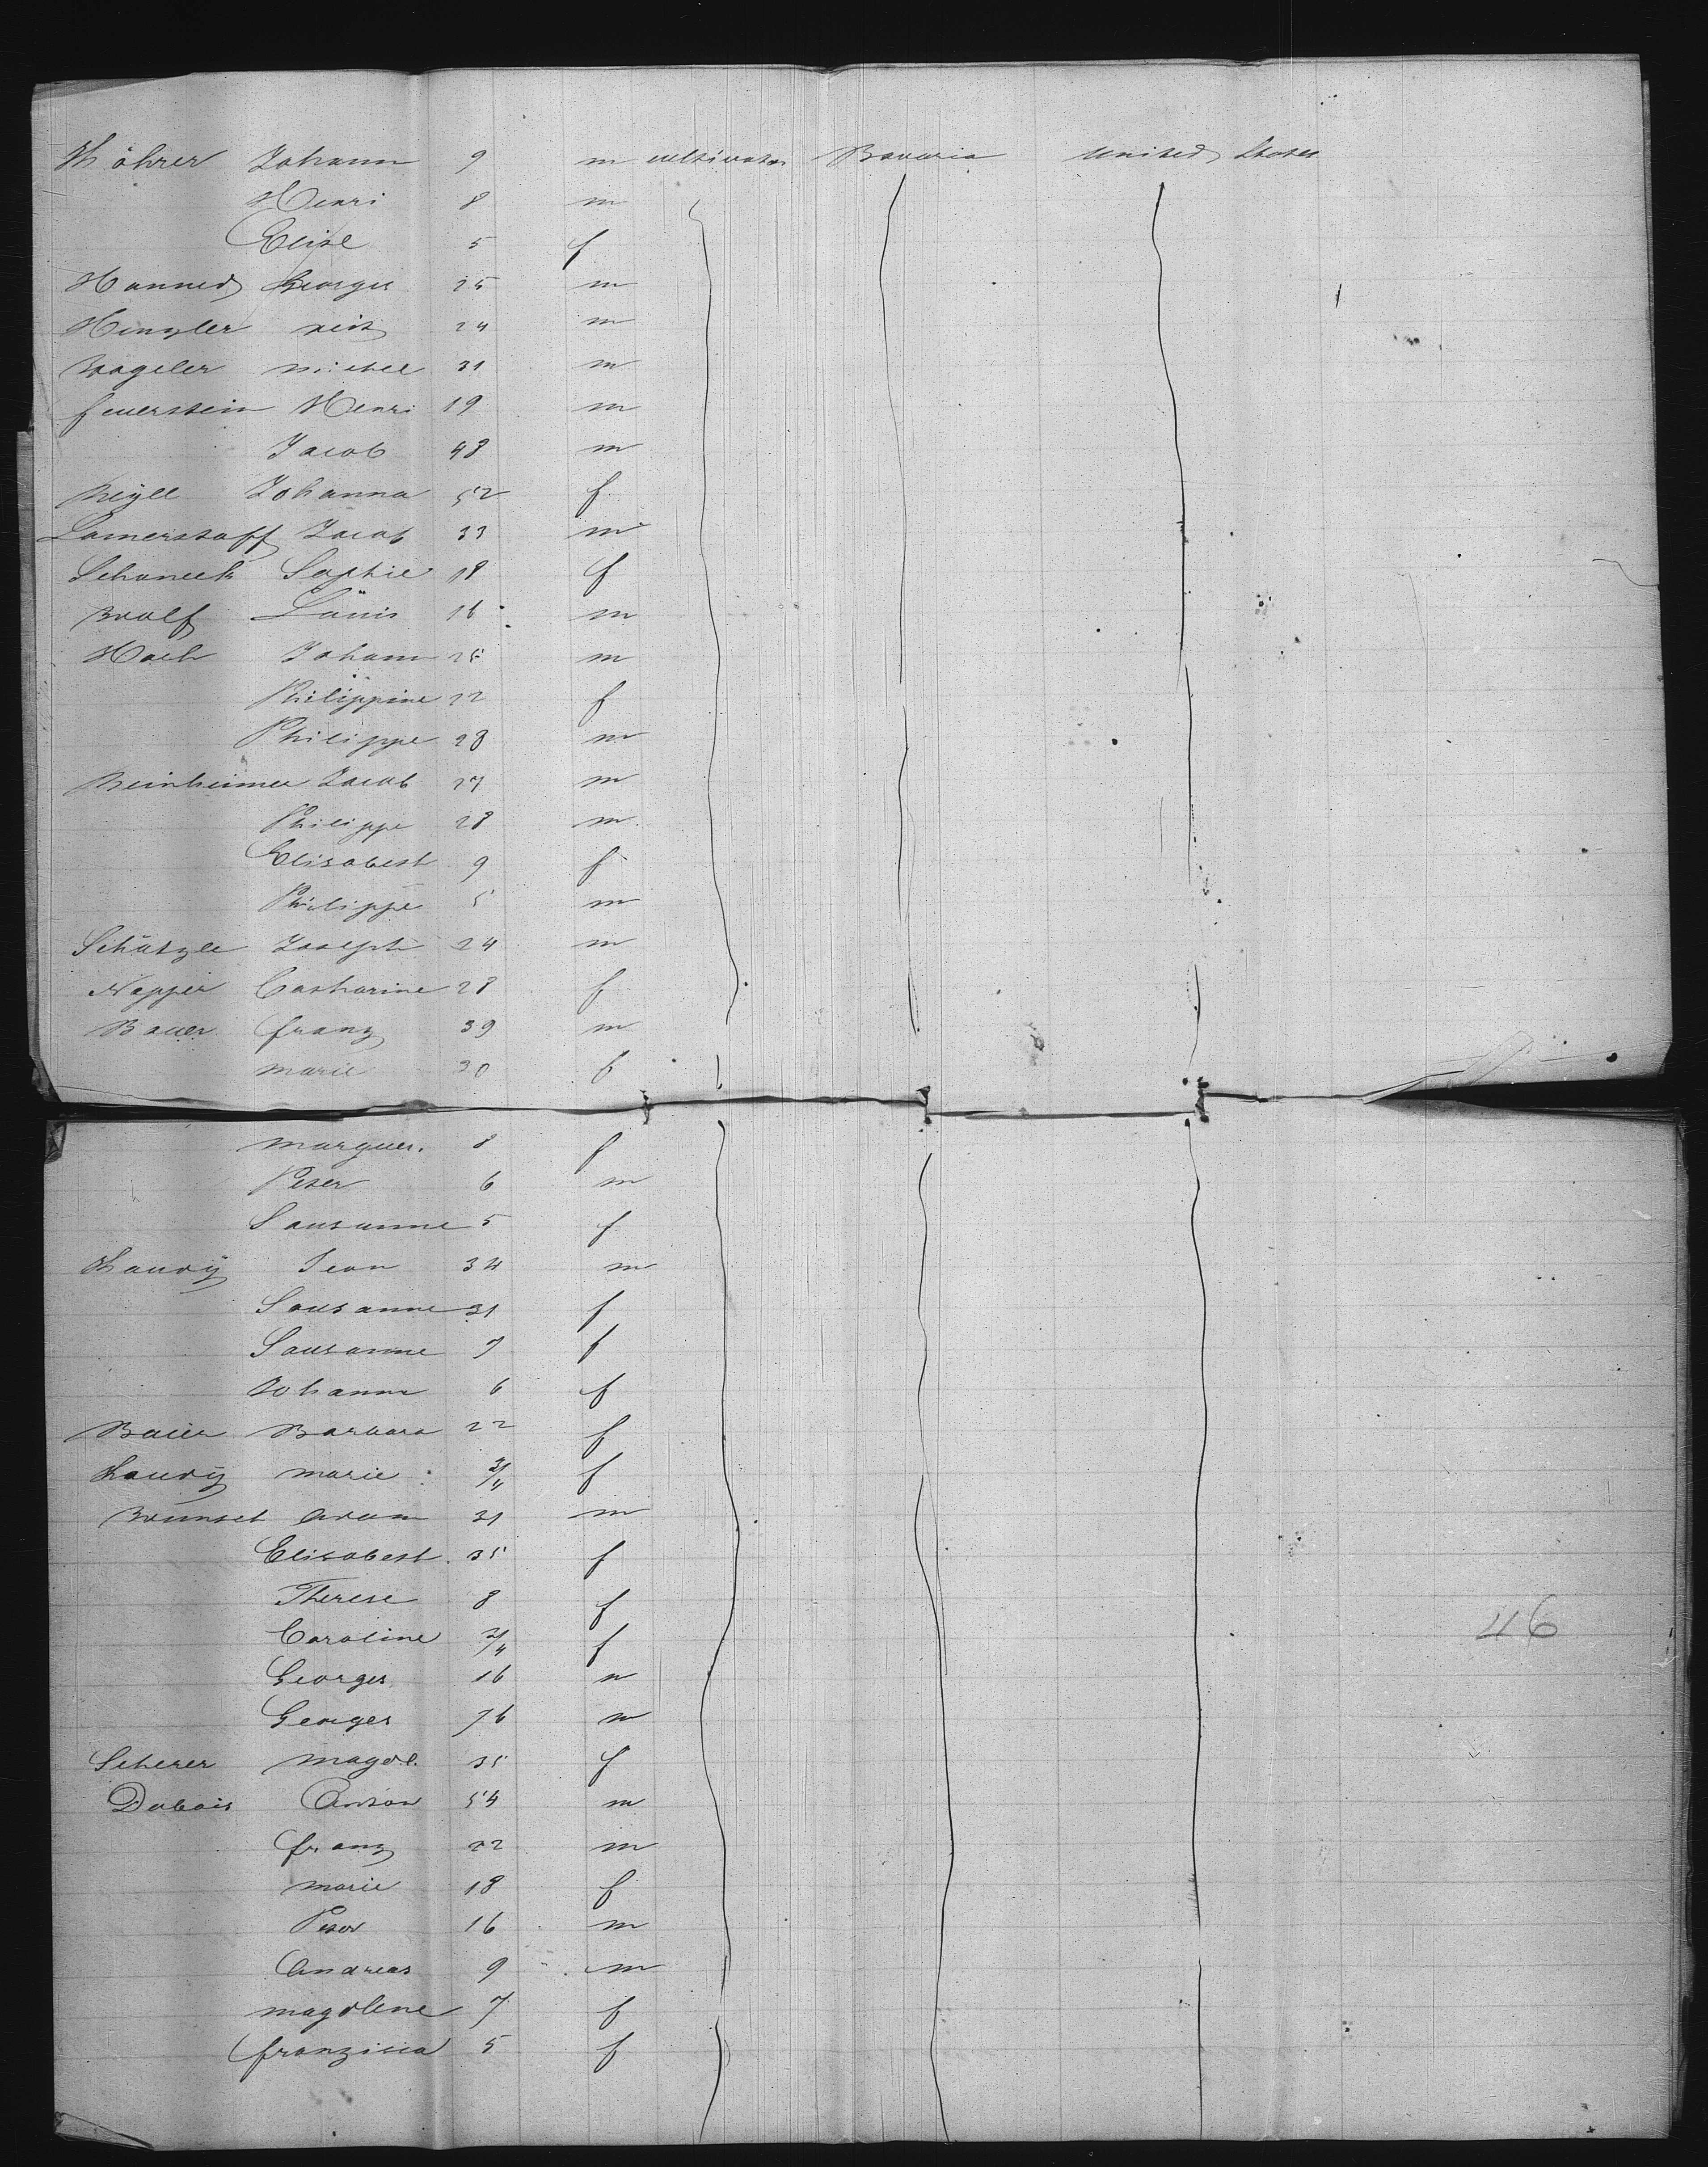 Möhrer Johann 9 m cultivator Bavaria United States
Henri 8 m
Elise 5 f
Hanned Georges 25 m
Hingler Veit 24 m
Wogeler Michel 31 m
Feuerstein Henri 19 m
Jacob 48 m
Johanna 52 f
Lamerstoff Jacob 33 m
Schaneck Sophie 18 f
Wolf Louis 16 m
Hoch Johann 25 m
Philippine 22 f
Philippe 28 m
Weinheimer Jacob 27 m
Philippe 28 m
Elisabeth 9 f
Philippe 5 m
Schätzle Joseph 24 m
Nopper Catharine 28 f
Bauer Franz 39 m
Marie 30 f
Marguer. 8 f
Peter 6 m
Sausanne 5 f
Haudÿ Jean 34 m
Sausanne 31 f
Sausanne 7 f
Johanna 6 f
Baier Barbara 22 f
Haudÿ Marie 3/4 f
Wunsch Adam 31 m
Elisabeth 35 f
Therese 8 f
Caroline 3/4 f
Georges 16 m
Georges 76 m
Scherer Magdl. 35 f
Dubois Anton 54 m
Franz 22 m
Marie 18 f
Peter 16 m
Andreas 9 m
Magdlene 7 f
Franzisca 5 f
46